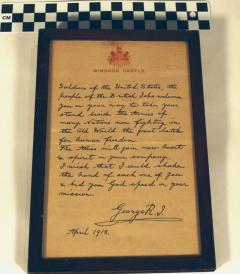 CM
WINDSOR CASTLE.
Soldiers of the United States, the
people of the British Isles welcome
you on your way to take your
stand beside the Armies of
many Nations now fighting in
the Old World the great battle
for human freedom.
The Allies will gain new heart
& spirit in your company.
I wish that I could shake
the hand of each one of you
& bid you God speed on your
mission.
George R.I.
April 1918.